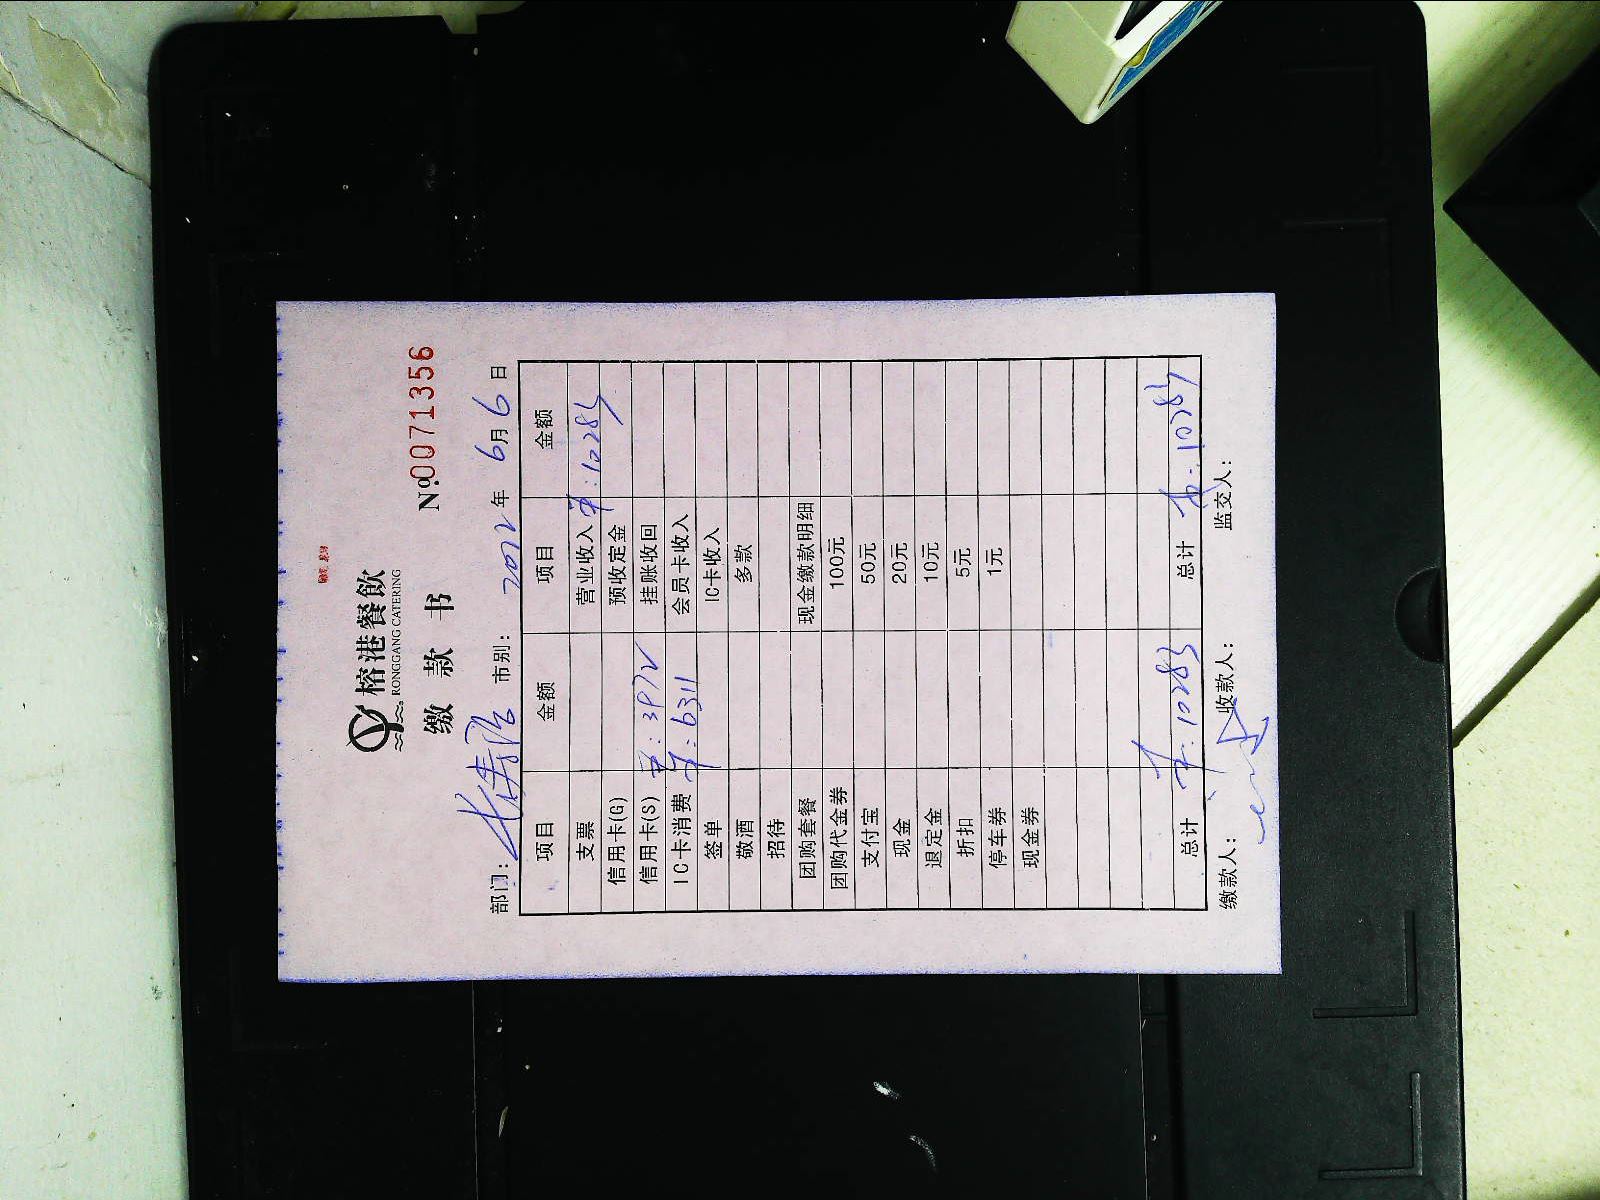 榕港餐飲
RONGGANG CATERING
缴 款 书
№0071356
部门: 市别: 2012年 6月 6日
项目 金额 项目 金额
支票 营业收入 : 10283
信用卡(G) 预收定金
信用卡(S) : 3972 挂账收回
IC卡消费 : 6311 会员卡收入
签单 IC卡收入
敬酒 多款
招待
团购套餐 现金缴款明细
团购代金券 100元
支付宝 50元
现金 20元
退定金 10元
折扣 5元
停车券 1元
现金券
总计 : 10283 总计 : 10283
缴款人: 收款人: 监交人: